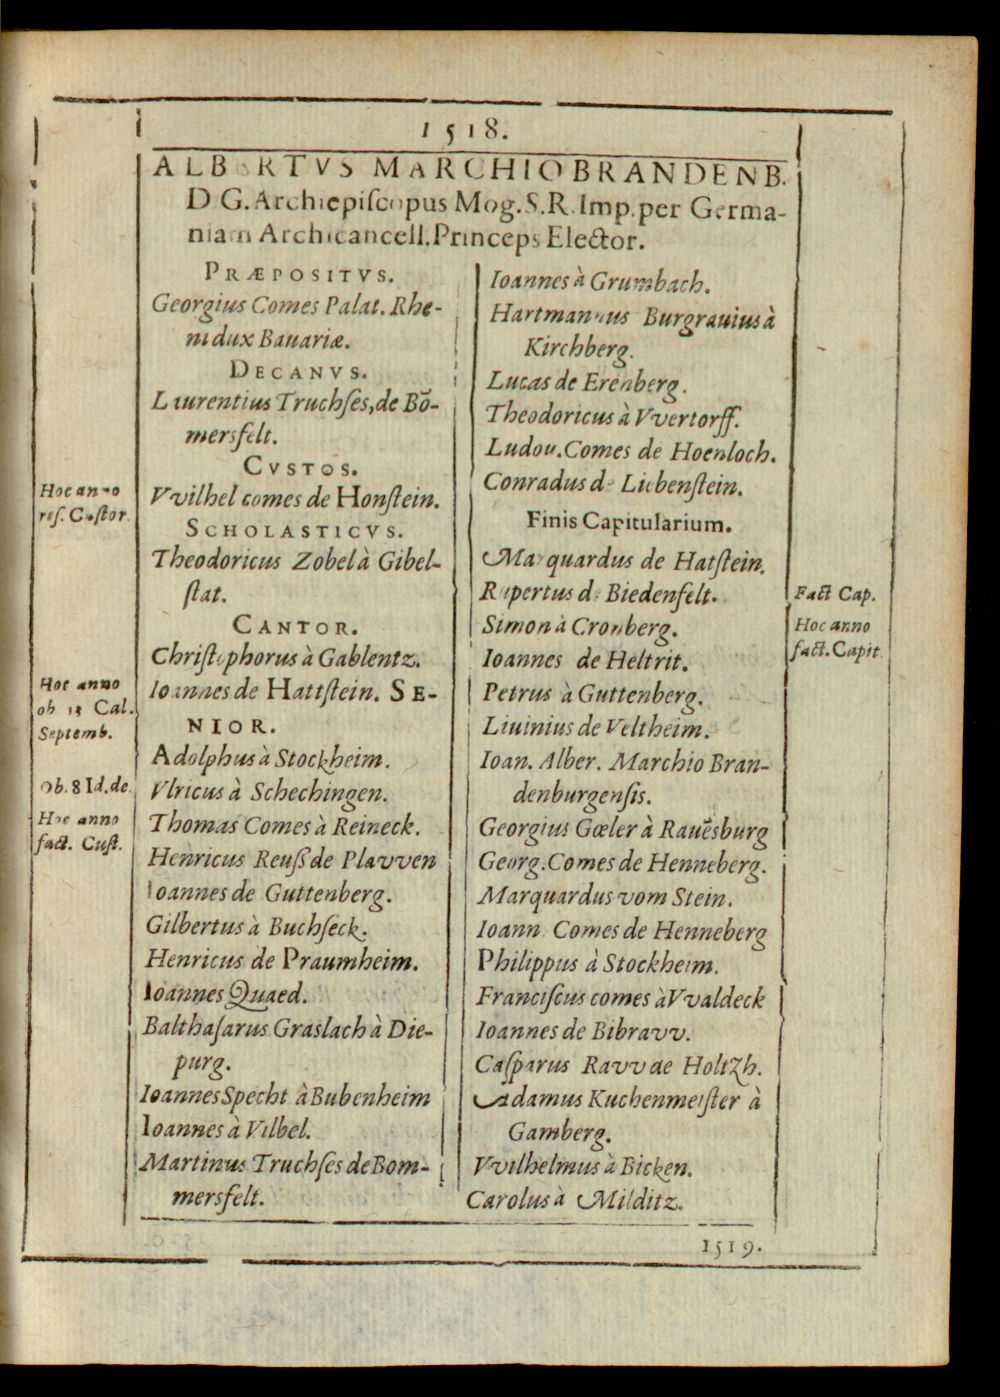 1518.
ALBERTVS MARCHIO BRANDENB.
D G. Archiepiſcopus Mog. S. R. Imp. per Germa-
niam Archicancell. Princeps Elector.
PRÆPOSITVS.
Georgius Comes Palat. Rhe-
ni dux Bauariæ.
DECANVS.
Laurentius Truchſes, de Bō-
mersfelt.
CVSTOS.
Hoc anno
reſ. Cuſtor.
Vvilhel comes de Honſtein.
SCHOLASTICVS.
Theodoricus Zobel à Gibel-
ſtat.
CANTOR.
Chriſtophorus à Gablentz.
Hoc anno
ob 13 Cal.
Septemb.
Ioannes de Hattſtein. SE-
NIOR.
Adolphus à Stockheim.
Ob. 8 Id. de.
Vlricus à Schechingen.
Hoc anno
fact. Cuſt.
Thomas Comes à Reineck.
Henricus Reuſs de Plavven
Ioannes de Guttenberg.
Gilbertus à Buchſeck.
Henricus de Praumheim.
Ioannes Quaed.
Balthaſarus Graslach à Die-
purg.
Ioannes Specht à Bubenheim
Ioannes à Vilbel.
Martinus Truchſes de Bom-
mersfelt.
Ioannes à Grumbach.
Hartmannus Burgrauius à
Kirchberg.
Lucas de Erenberg.
Theodoricus à Vvertorff.
Ludou. Comes de Hoenloch.
Conradus de Liebenſtein.
Finis Capitularium.
Marquardus de Hatſtein.
Rupertus de Biedenfelt.
Fact Cap.
Simon à Cronberg.
Hoc anno
fact. Capit
Ioannes de Heltrit.
Petrus à Guttenberg.
Liuinius de Veltheim.
Ioan. Alber. Marchio Bran-
denburgenſis.
Georgius Gœler à Rauēsburg
Georg. Comes de Henneberg.
Marquardus vom Stein.
Ioann. Comes de Henneberg
Philippus à Stockheim.
Franciſcus comes à Vvaldeck
Ioannes de Bibravv.
Caſparus Ravv de Holtzh.
Adamus Kuchenmeiſter à
Gamberg.
Vvilhelmus à Bicken.
Carolus à Milditz.
1519.